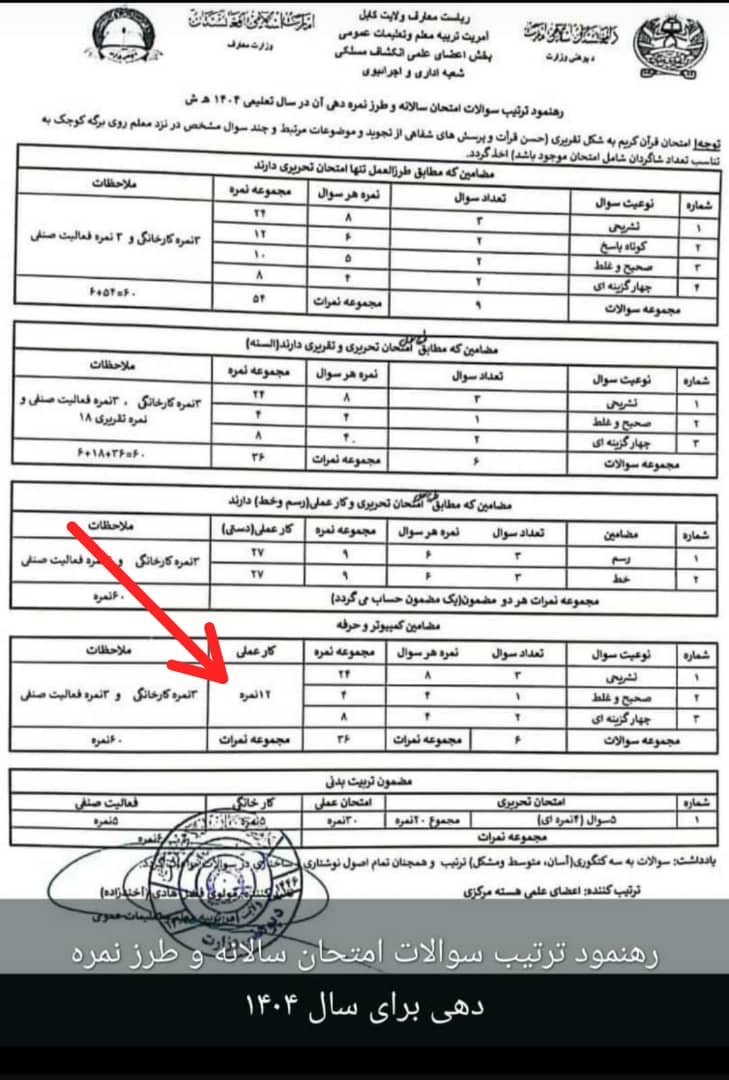 ریاست معارف ولایت کابل
آمریت تربیه معلم وتعلیمات عمومی
بخش اعضای علمی انکشاف مسلکی
شعبه اداری و اجرائیوی
وزارت معارف
د پوهنې وزارت
رهنمود ترتیب سوالات امتحان سالانه و طرز نمره دهی آن در سال تعلیمی ۱۴۰۴ هـ ش
توجه! امتحان قرآن کریم به شکل تقریری (حسن قرأت و پرسش های شفاهی از تجوید و موضوعات مرتبط و چند سوال مشخص در نزد معلم روی برگه کوچک به
تناسب تعداد شاگردان شامل امتحان موجود باشد) اخذ گردد.
مضامین که مطابق طرزالعمل تنها امتحان تحریری دارند
شماره نوعیت سوال تعداد سوال نمره هر سوال مجموعه نمره ملاحظات
۱ تشریحی ۳ ۸ ۲۴
۲ کوتاه پاسخ ۲ ۶ ۱۲
۳ صحیح و غلط ۲ ۵ ۱۰
۴ چهار گزینه ای ۲ ۴ ۸
۳نمره کارخانگی و ۳ نمره فعالیت صنفی
مجموعه سوالات ۹ مجموعه نمرات ۵۴ ۶+۵۴=۶۰
مضامین که مطابق امتحان تحریری و تقریری دارند(السنه)
شماره نوعیت سوال تعداد سوال نمره هر سوال مجموعه نمره ملاحظات
۱ تشریحی ۳ ۸ ۲۴
۲ صحیح و غلط ۱ ۴ ۴
۳ چهار گزینه ای ۲ ۴ ۸
۳نمره کارخانگی ، ۳نمره فعالیت صنفی و
نمره تقریری ۱۸
مجموعه سوالات ۶ مجموعه نمرات ۳۶ ۶+۱۸+۳۶=۶۰
مضامین که مطابق امتحان تحریری و کار عملی(رسم وخط) دارند
شماره مضامین تعداد سوال نمره هر سوال مجموعه نمره کار عملی(دستی) ملاحظات
۱ رسم ۳ ۶ ۹ ۲۷
۲ خط ۳ ۶ ۹ ۲۷
۳نمره کارخانگی و نمره فعالیت صنفی
مجموعه نمرات هر دو مضمون(یک مضمون حساب می گردد) ۶۰نمره
مضامین کمپیوتر و حرفه
شماره نوعیت سوال تعداد سوال نمره هر سوال مجموعه نمره کار عملی ملاحظات
۱ تشریحی ۳ ۸ ۲۴
۲ صحیح و غلط ۱ ۴ ۴
۳ چهار گزینه ای ۲ ۴ ۸
۱۲نمره ۳نمره کارخانگی و ۳نمره فعالیت صنفی
مجموعه سوالات ۶ مجموعه نمرات ۳۶ مجموعه نمرات ۶۰نمره
مضمون تربیت بدنی
شماره امتحان تحریری امتحان عملی کار خانگی فعالیت صنفی
۱ ۵سوال (۴نمره ای) مجموع ۲۰نمره ۳۰نمره ۵نمره ۵نمره
مجموعه نمرات
یادداشت: سوالات به سه کتگوری(آسان، متوسط ومشکل) ترتیب و همچنان تمام اصول نوشتاری و ساختاری در سوالات
ترتیب کننده: اعضای علمی هسته مرکزی
رهنمود ترتیب سوالات امتحان سالانه و طرز نمره
دهی برای سال ۱۴۰۴